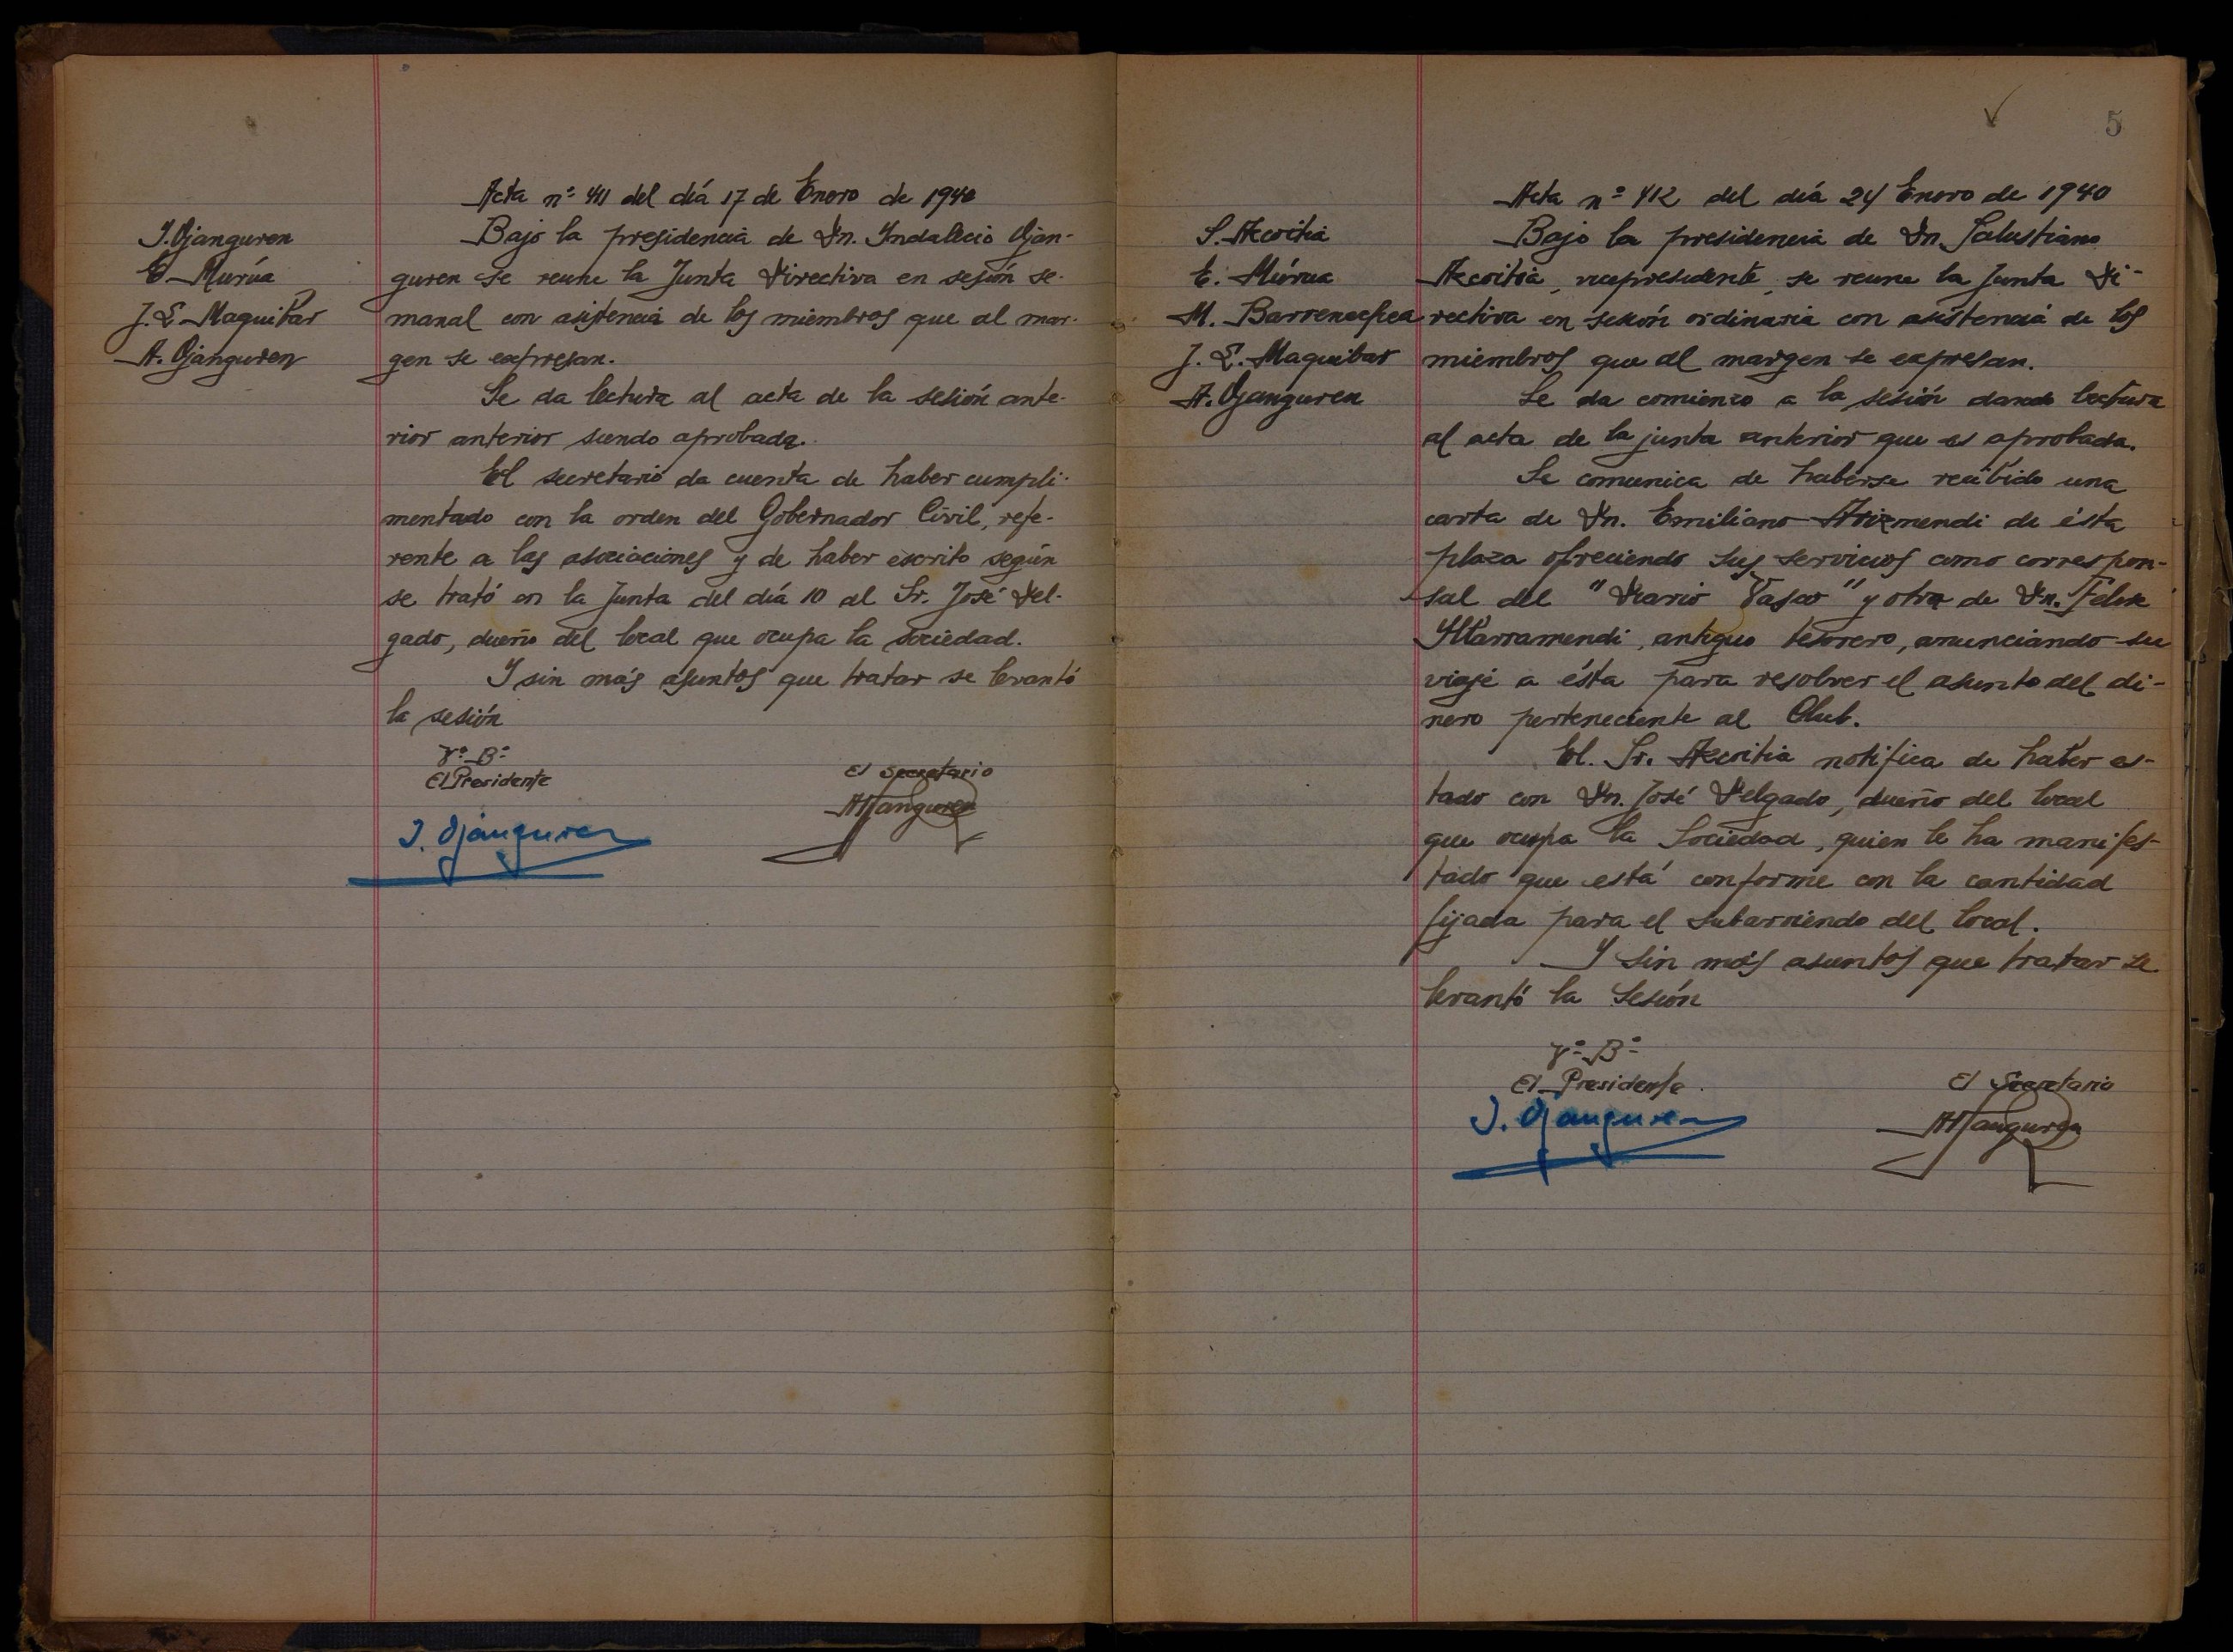 Acta nº 411 del día 17 de Enero de 1940
I. Ojanguren
E. Murúa
J. L. Maguibar
A. Ojanguren
Bajo la presidencia de Dn. Yndalecio Ojan-
guren se reune la Junta Directiva en sesión se-
manal con asistencia de los miembros que al mar-
gen se expresan.
Se da lectura al acta de la sesión ante-
rior anterior siendo aprobada.
El secretario da cuenta de haber cumpli-
mentado con la orden del Gobernador Civil, refe-
rente a las asociaciones y de haber escrito según
se trató en la Junta del día 10 al Sr. José Del-
gado, dueño del local que ocupa la sociedad.
Y sin más asuntos que tratar se levantó
la sesión
Vº Bº
El Presidente
El Secretario
I. Ojanguren
AOjanguren
5
Acta nº 412 del día 24 Enero de 1940
S. Azcoitia
E. Múrua
M. Barrenechea
J. L. Maguibar
A. Ojanguren
Bajo la presidencia de Dn. Salustiano
Azcoitia, vicepresidente, se reune la Junta Di-
rectiva en sesión ordinaria con asistencia de los
miembros que al margen se expresan.
Se da comienzo a la sesión dando lectura
al acta de la junta anterior que es aprobada.
Se comunica de haberse recibido una
carta de Dn. Emiliano Arizmendi de ésta
plaza ofreciendo sus servicios como correspon-
sal del "Diario Vasco" y otra de Dn. Felix
Yttarramendi, antiguo tesorero, anunciando su
viaje a ésta para resolver el asunto del di-
nero perteneciente al Club.
El Sr. Azcoitia notifica de haber es-
tado con Dn. José Delgado, dueño del local
que ocupa la Sociedad, quien le ha manifes-
tado que está conforme con la cantidad
fijada para el subarriendo del local.
Y sin más asuntos que tratar se
levantó la Sesión
Vº Bº
El Presidente.
El Secretario
I. Ojanguren
AOjanguren